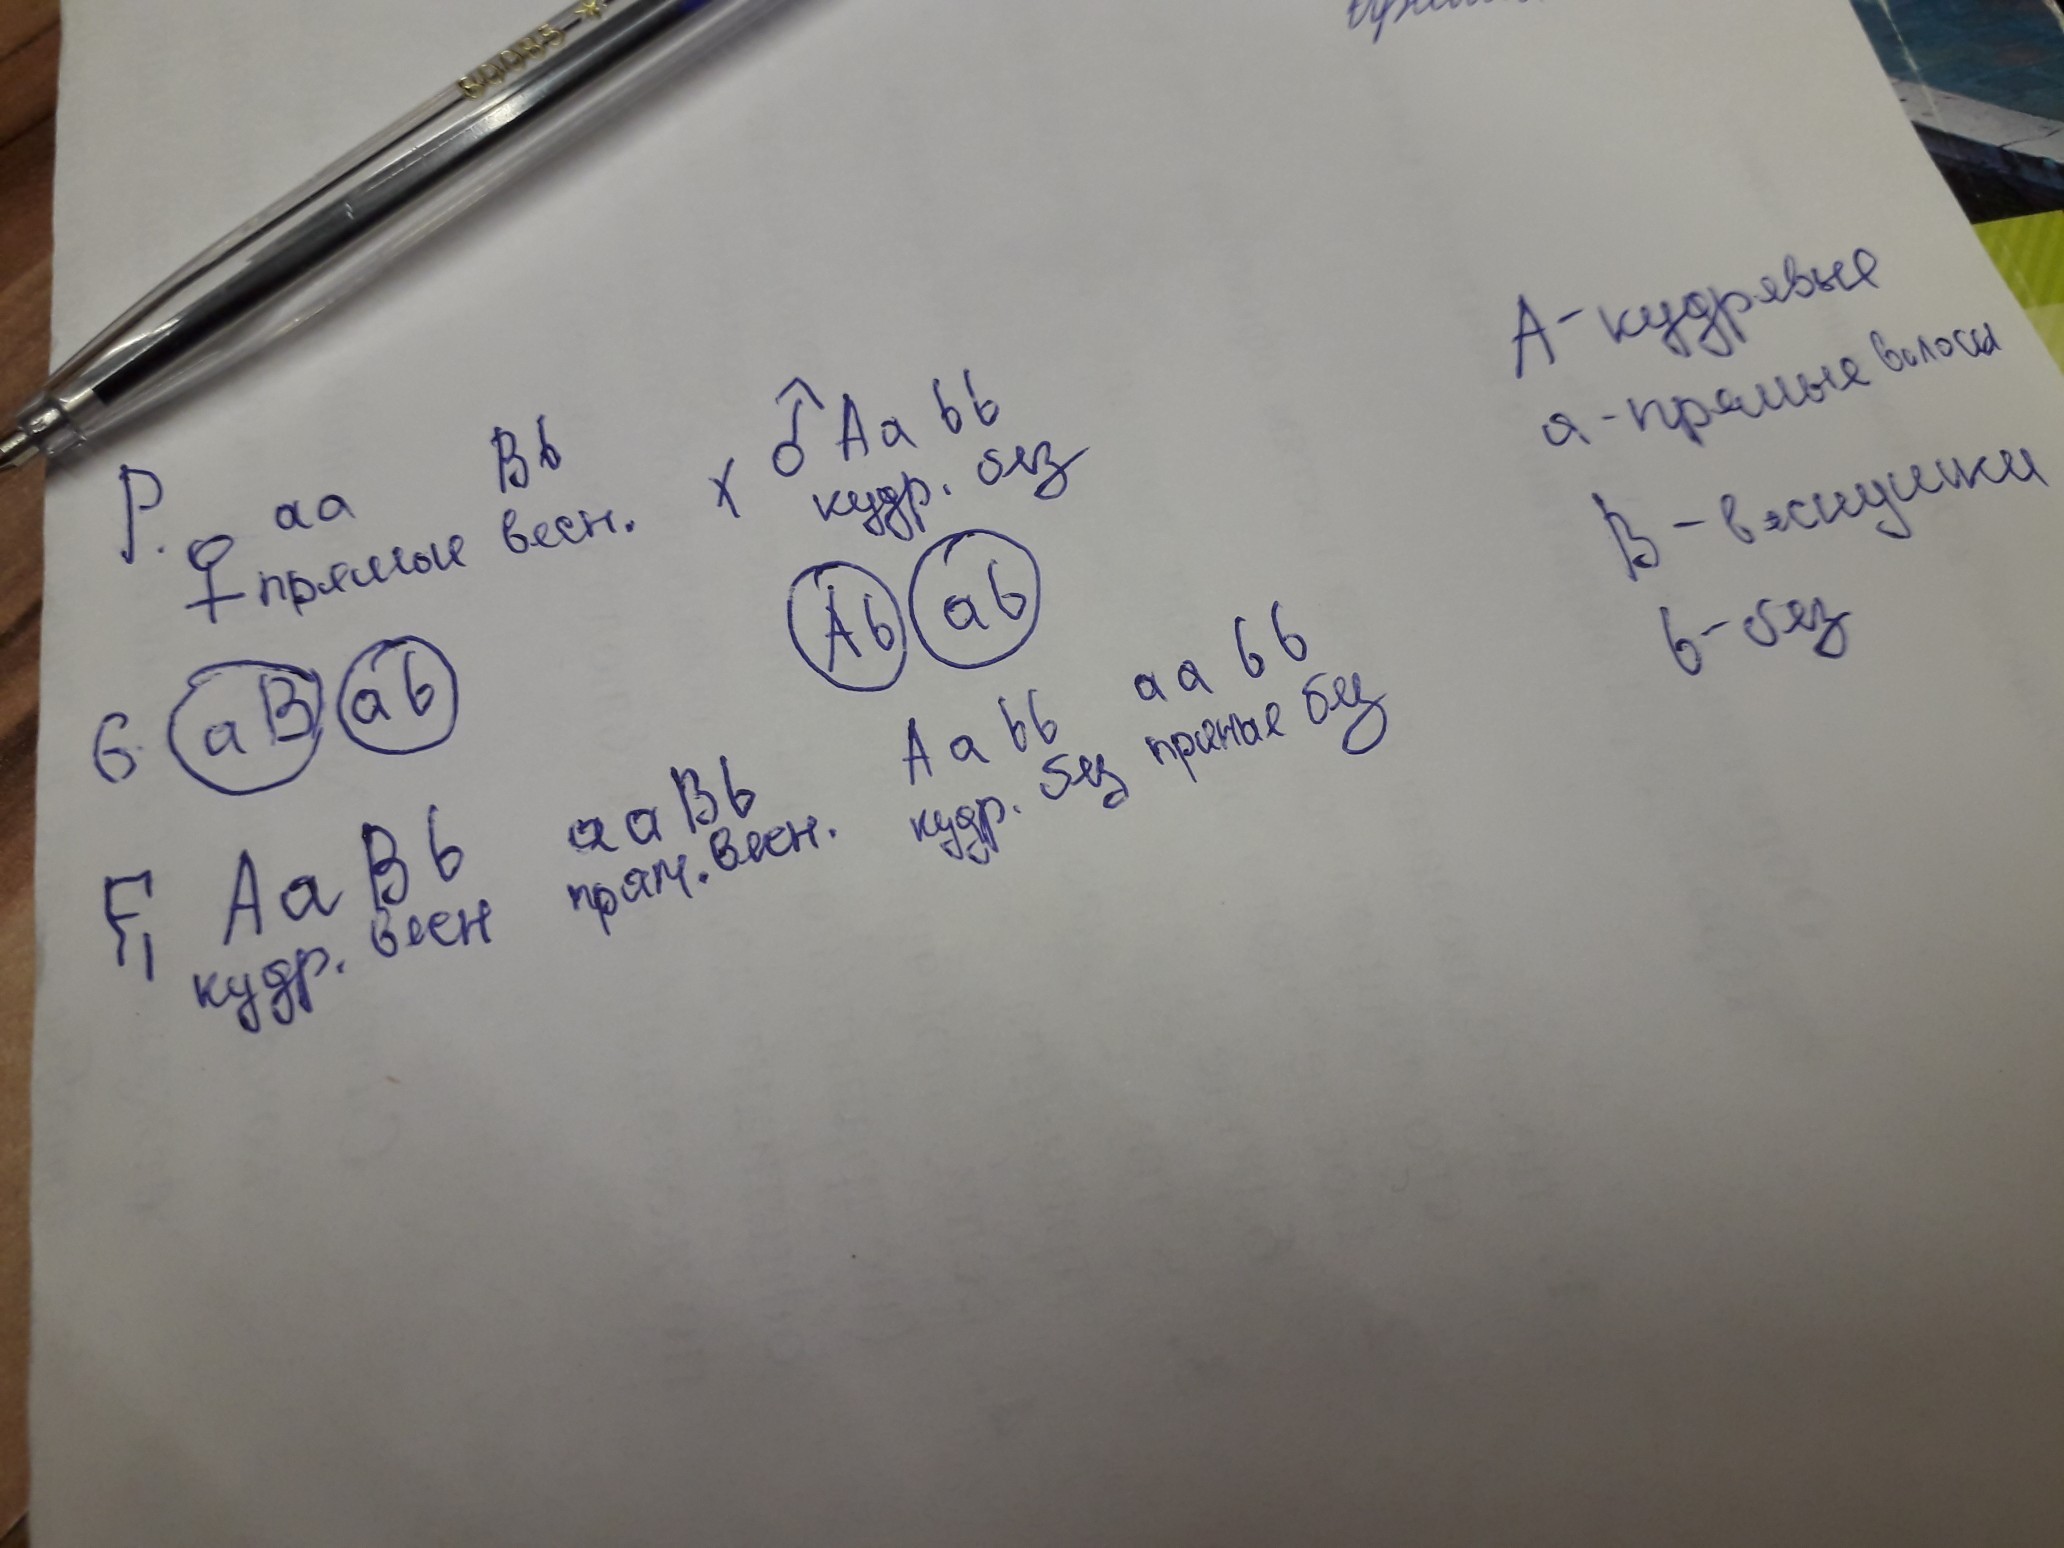 P. ♀ aa Bb x ♂ Aa bb
прямые весн. кудр. без
G. aB ab Ab ab
F1 AaBb aaBb Aabb aabb
кудр. весн прям. весн. кудр. без прямые без
A - кудрявые
a - прямые волосы
B - вяснушки
b - без